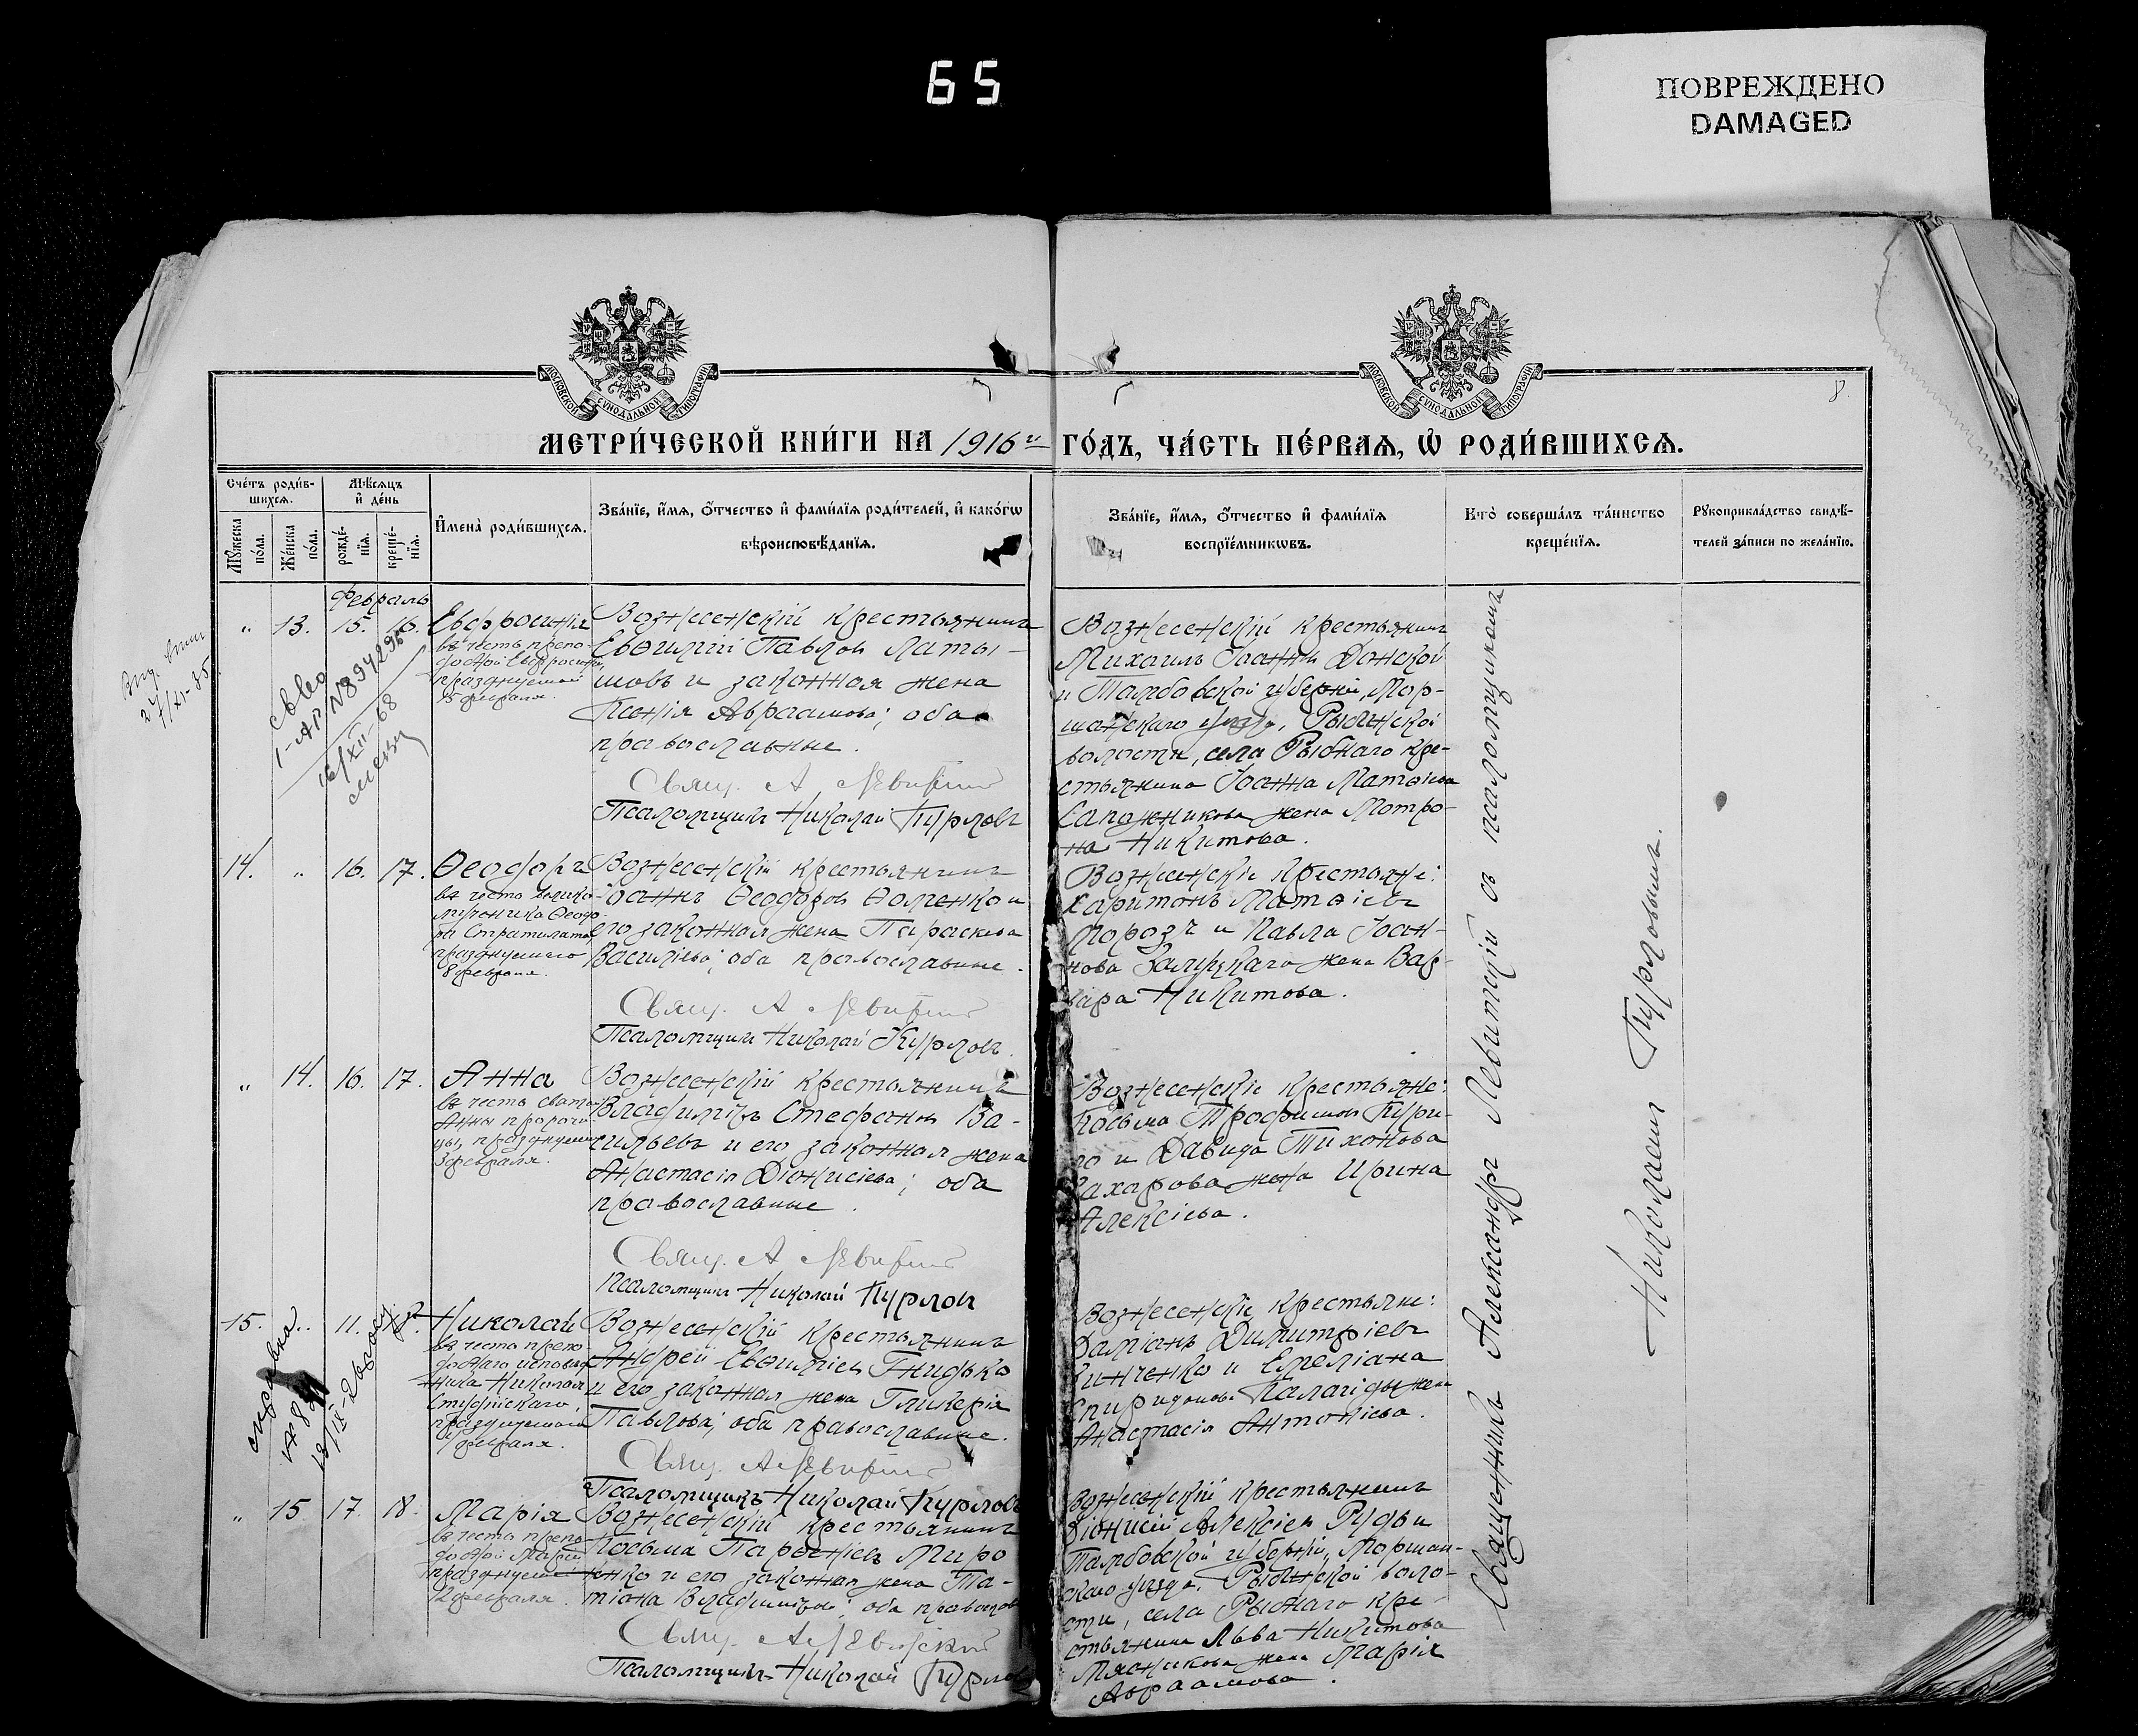 65
ПОВРЕЖДЕНО
DAMAGED
МОСКОВСКОЙ СѴНОДАЛЬНОЙ ТИПОГРАФІИ
МОСКОВСКОЙ СѴНОДАЛЬНОЙ ТИПОГРАФІИ
8.
МЕТРИ́ЧЕСКОЙ КНИ́ГИ НА 1916 й ГО́ДЪ, ЧА́СТЬ ПЕ́РВАѦ, Ѡ҆ РОДИ́ВШИХСѦ.
Сче́тъ роди́в-
шихсѧ.
Мѣ́сѧцъ
и҆ де́нь
Мꙋ́жеска
по́ла.
Же́нска
по́ла.
рожде́-
нїѧ.
креще́-
нїѧ.
И҆мена̀ роди́вшихсѧ.
Зва́нїе, и҆́мѧ, ѻ҆́тчество и҆ фами́лїѧ роди́телей, и҆ како́гѡ
вѣроисповѣ́данїѧ.
Зва́нїе, и҆́мѧ, ѻ҆́тчество и҆ фами́лїѧ
воспрїе́мникѡвъ.
Кто̀ соверша́лъ та́инство
креще́нїѧ.
Рꙋкоприкла́дство свидѣ́-
телей за́писи по жела́нїю.
Февраль
„ 13. 15. 16. Евфросинія
въ честь препо-
добной Евфросиніи,
празднуемой
15 февраля.
Вознесенскій крестьянинъ
Евѳимій Павловъ Латы-
шовъ и законная жена
Ксенія Авраамова; оба
православные.
Свящ. А Левитскій
Псаломщикъ Николай Курловъ
Вознесенскій крестьянинъ
Михаилъ Іоанновъ Донской
и Тамбовской губерніи, Мор-
шанскаго уѣзда, Рыбинской
волости, села Рыбнаго кре-
стьянина Іоанна Матѳіева
Сапожникова жена Матро-
на Никитова.
14. „ 16. 17. Ѳеодоръ
въ честь велико-
мученика Ѳеодо-
ра Стратилата
празднуемаго
8 февраля.
Вознесенскій крестьянинъ
Іоаннъ Ѳеодоровъ Ѳоменко и
его законная жена Параскева
Василіева; оба православные.
Свящ. А Левитскій
Псаломщикъ Николай Курловъ.
Вознесенскіе крестьяне:
Харитонъ Матѳіевъ
Морозъ и Павла Іоан-
нова Залуцкаго жена Вар-
вара Никитова.
„ 14. 16. 17. Анна
въ честь святой
Анны пророчи-
цы, празднуемой
3 февраля.
Вознесенскій крестьянинъ
Владиміръ Стефановъ Ва-
сильевъ и его законная жена
Анастасія Діонисіева; оба
православные.
Свящ. А Левитскій
Псаломщикъ Николай Курловъ
Вознесенскіе крестьяне:
Косьма Трофимовъ
и Давида Тихонова
Захарова жена Ирина
Алексіева.
15. „ 11. Николай
въ честь препо-
добнаго исповѣд-
ника Николая
Студійскаго,
празднуемаго
4 февраля.
Вознесенскій крестьянинъ
Андрей Евѳиміевъ Гнидько
и его законная жена Гликерія
Павлова; оба православные.
Свящ. А Левитскій
Псаломщикъ Николай Курловъ
Вознесенскіе крестьяне:
Даміанъ Димитріевъ
и Емеліана
Спиридонова жена
Анастасія Антоніева.
„ 15 17. 18. Марія
въ честь препо-
добной Маріи
празднуемой
12 февраля.
Вознесенскій крестьянинъ
Косьма Парѳеніевъ Миро
ненко и его законная жена Та-
тіана Владимірова; оба православ
Свящ. А Левитскій
Псаломщикъ Николай Курловъ
Вознесенскій крестьянинъ
Діонисій Алексіевъ Рудь и
Тамбовской губерніи, Моршан-
скаго уѣзда, Рыбинской воло-
сти, села Рыбнаго кре-
стьянина Льва Никитова
Мясникова жена Марія
Авраамова.
Священникъ Александръ Левитскій съ псаломщикомъ
Николаемъ Курловымъ.
справка